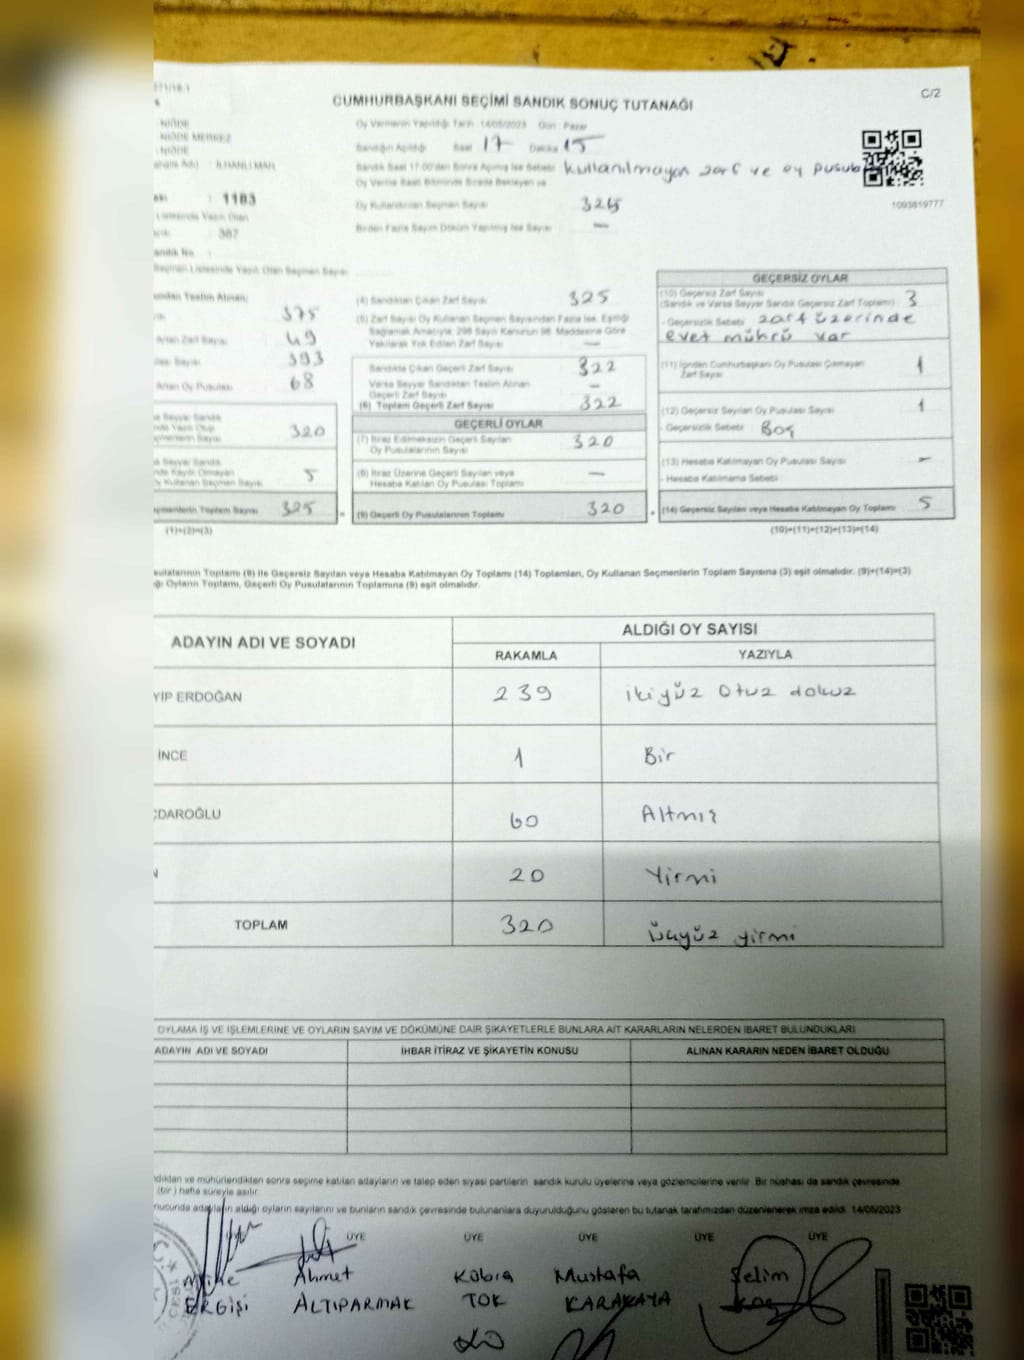 C/2
CUMHURBAŞKANI SEÇİMİ SANDIK SONUÇ TUTANAĞI
NİĞDE
NİĞDE MERKEZ
NİĞDE
İLHANLI MAH.
1183
387
Oy Vermenin Yapıldığı Tarih : 14/05/2023 Gün : Pazar
Sandığın Açıldığı Saat 17 Dakika 15
Sandık Saat 17:00'den Sonra Açılmış İse Sebebi kullanılmayan zarf ve oy pusula
Oy Verme Saati Bitiminde Sırada Bekleyen ve
Oy Kullandırılan Seçmen Sayısı 325
Birden Fazla Sayım Döküm Yapılmış İse Sayısı —
1093819777
375
Artan Zarf Sayısı 49
393
Artan Oy Pusulası 68
320
5
Seçmenlerin Toplam Sayısı 325
(1)+(2)=(3)
(4) Sandıktan Çıkan Zarf Sayısı 325
(5) Zarf Sayısı Oy Kullanan Seçmen Sayısından Fazla İse, Eşitliği
Sağlamak Amacıyla; 298 Sayılı Kanunun 98. Maddesine Göre
Yakılarak Yok Edilen Zarf Sayısı —
Sandıkta Çıkan Geçerli Zarf Sayısı 322
Varsa Seyyar Sandıktan Teslim Alınan
Geçerli Zarf Sayısı —
(6) Toplam Geçerli Zarf Sayısı 322
GEÇERLİ OYLAR
(7) İtiraz Edilmeksizin Geçerli Sayılan
Oy Pusulalarının Sayısı 320
(8) İtiraz Üzerine Geçerli Sayılan veya
Hesaba Katılan Oy Pusulası Toplamı —
(9) Geçerli Oy Pusulalarının Toplamı 320
GEÇERSİZ OYLAR
(10) Geçersiz Zarf Sayısı
(Sandık ve Varsa Seyyar Sandık Geçersiz Zarf Toplamı) 3
- Geçersizlik Sebebi : zarf üzerinde
evet mührü var
(11) İçinden Cumhurbaşkanı Oy Pusulası Çıkmayan
Zarf Sayısı 1
(12) Geçersiz Sayılan Oy Pusulası Sayısı 1
- Geçersizlik Sebebi : Boş
(13) Hesaba Katılmayan Oy Pusulası Sayısı –
- Hesaba Katılmama Sebebi :
(14) Geçersiz Sayılan veya Hesaba Katılmayan Oy Toplamı 5
(10)+(11)+(12)+(13)=(14)
Toplamı (9) ile Geçersiz Sayılan veya Hesaba Katılmayan Oy Toplamı (14) Toplamları, Oy Kullanan Seçmenlerin Toplam Sayısına (3) eşit olmalıdır. (9)+(14)=(3)
Oyların Toplamı, Geçerli Oy Pusulalarının Toplamına (9) eşit olmalıdır.
ADAYIN ADI VE SOYADI ALDIĞI OY SAYISI
RAKAMLA YAZIYLA
YİP ERDOĞAN 239 ikiyüz otuz dokuz
İNCE 1 Bir
ÇDAROĞLU 60 Altmış
N 20 Yirmi
TOPLAM 320 üçyüz yirmi
OYLAMA İŞ VE İŞLEMLERİNE VE OYLARIN SAYIM VE DÖKÜMÜNE DAİR ŞİKAYETLERLE BUNLARA AİT KARARLARIN NELERDEN İBARET BULUNDUKLARI
ADAYIN ADI VE SOYADI İHBAR İTİRAZ VE ŞİKAYETİN KONUSU ALINAN KARARIN NEDEN İBARET OLDUĞU
ve mühürlendikten sonra seçime katılan adayların ve talep eden siyasi partilerin sandık kurulu üyelerine veya gözlemcilerine verilir. Bir nüshası da sandık çevresinde
(bir ) hafta süreyle asılır.
adayların aldığı oyların sayılarını ve bunların sandık çevresinde bulunanlara duyurulduğunu gösteren bu tutanak tarafımızdan düzenlenerek imza edildi. 14/05/2023
ÜYE ÜYE ÜYE ÜYE ÜYE
Ahmet Kübra Mustafa Selim
ERGİŞİ ALTIPARMAK TOK KARAKAYA KOÇ